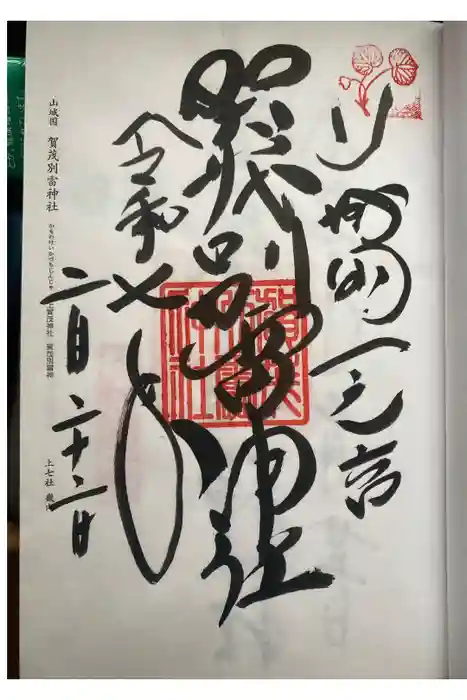 山城國一之宮
賀茂別雷神社
賀茂別雷神社
令和七年
二月二十二日
山城国 賀茂別雷神社
かもわけいかづちじんじゃ
上賀茂神社 賀茂別雷神
上七社